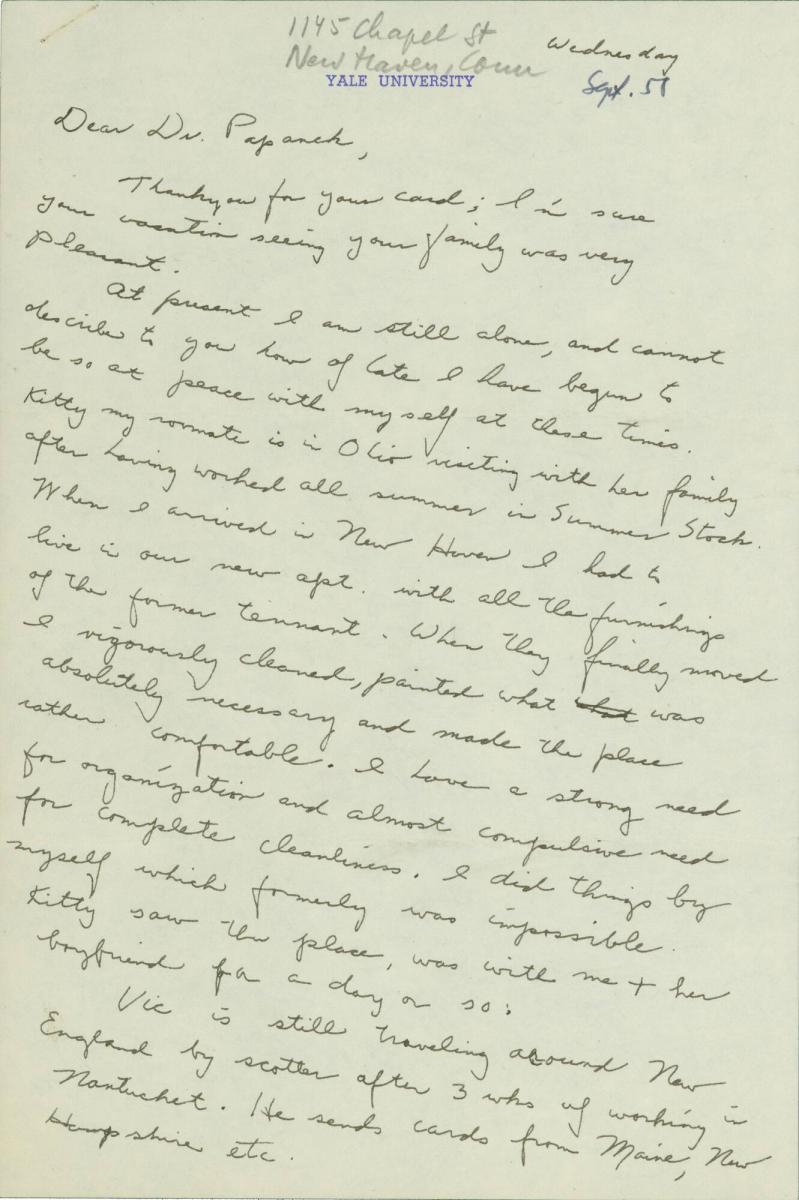 1145 Chapel St
New Haven, Conn
Wednesday
YALE UNIVERSITY
Sept. 58
Dear Dr. Papanek,
Thankyou for your card; I'm sure
your vacation seeing your family was very
pleasant.
At present I am still alone, and cannot
describe to you how of late I have begun to
be so at peace with myself at these times.
Kitty my roomate is in Ohio visiting with her family
after having worked all summer in Summer Stock.
When I arrived in New Haven I had to
live in our new apt. with all the furnishings
of the former tennant. When they finally moved
I vigorously cleaned, painted what what was
absolutely necessary and made the place
rather comfortable. I have a strong need
for organization and almost compulsive need
for complete cleanliness. I did things by
myself which formerly was impossible.
Kitty saw the place, was with me + her
boyfriend for a day or so.
Vic is still traveling around New
England by scotter after 3 wks of working in
Nantucket. He sends cards from Maine, New
Hampshire etc.